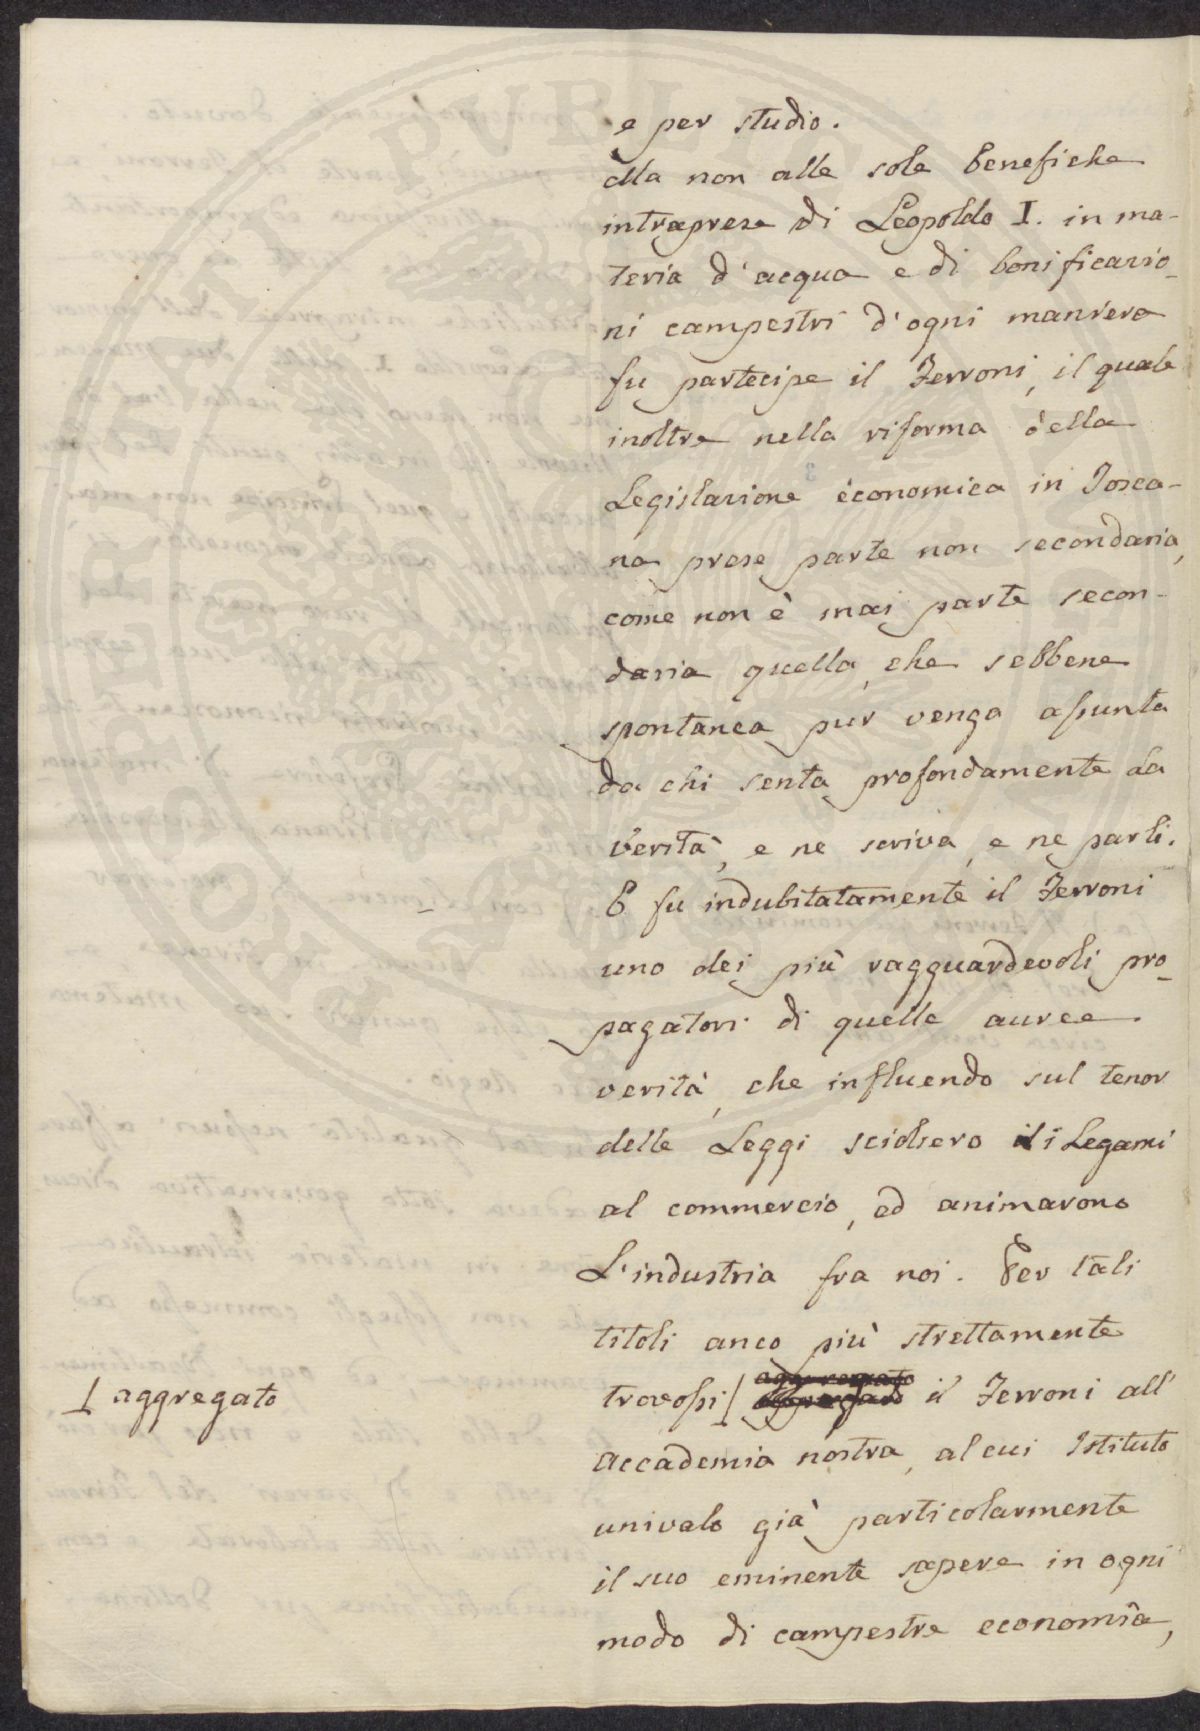 e per studio.
Ma non alle sole benefiche
intraprese di Leopoldo I. in ma-
teria d'acqua e di bonificazio-
ni campestri d'ogni maniera
fu partecipe il Ferroni, il quale
inoltre nella riforma della
Legislazione economica in Tosca-
na prese parte non secondaria,
come non è mai parte secon-
daria quella, che sebbene
spontanea pur venga assunta
da chi senta profondamente la
verità, e ne scriva, e ne parli.
E fu indubitatamente il Ferroni
uno dei più ragguardevoli pro-
pagatori di quelle auree
verità, che influendo sul tenor
delle Leggi sciolsero i Legami
al commercio, ed animarono
L'industria fra noi. Per tali
titoli anco più strettamente
aggregato
trovossi il Ferroni all'
aggregato
Accademia nostra, al cui Istituto
univalo già particolarmente
il suo eminente sapere in ogni
modo di campestre economia,